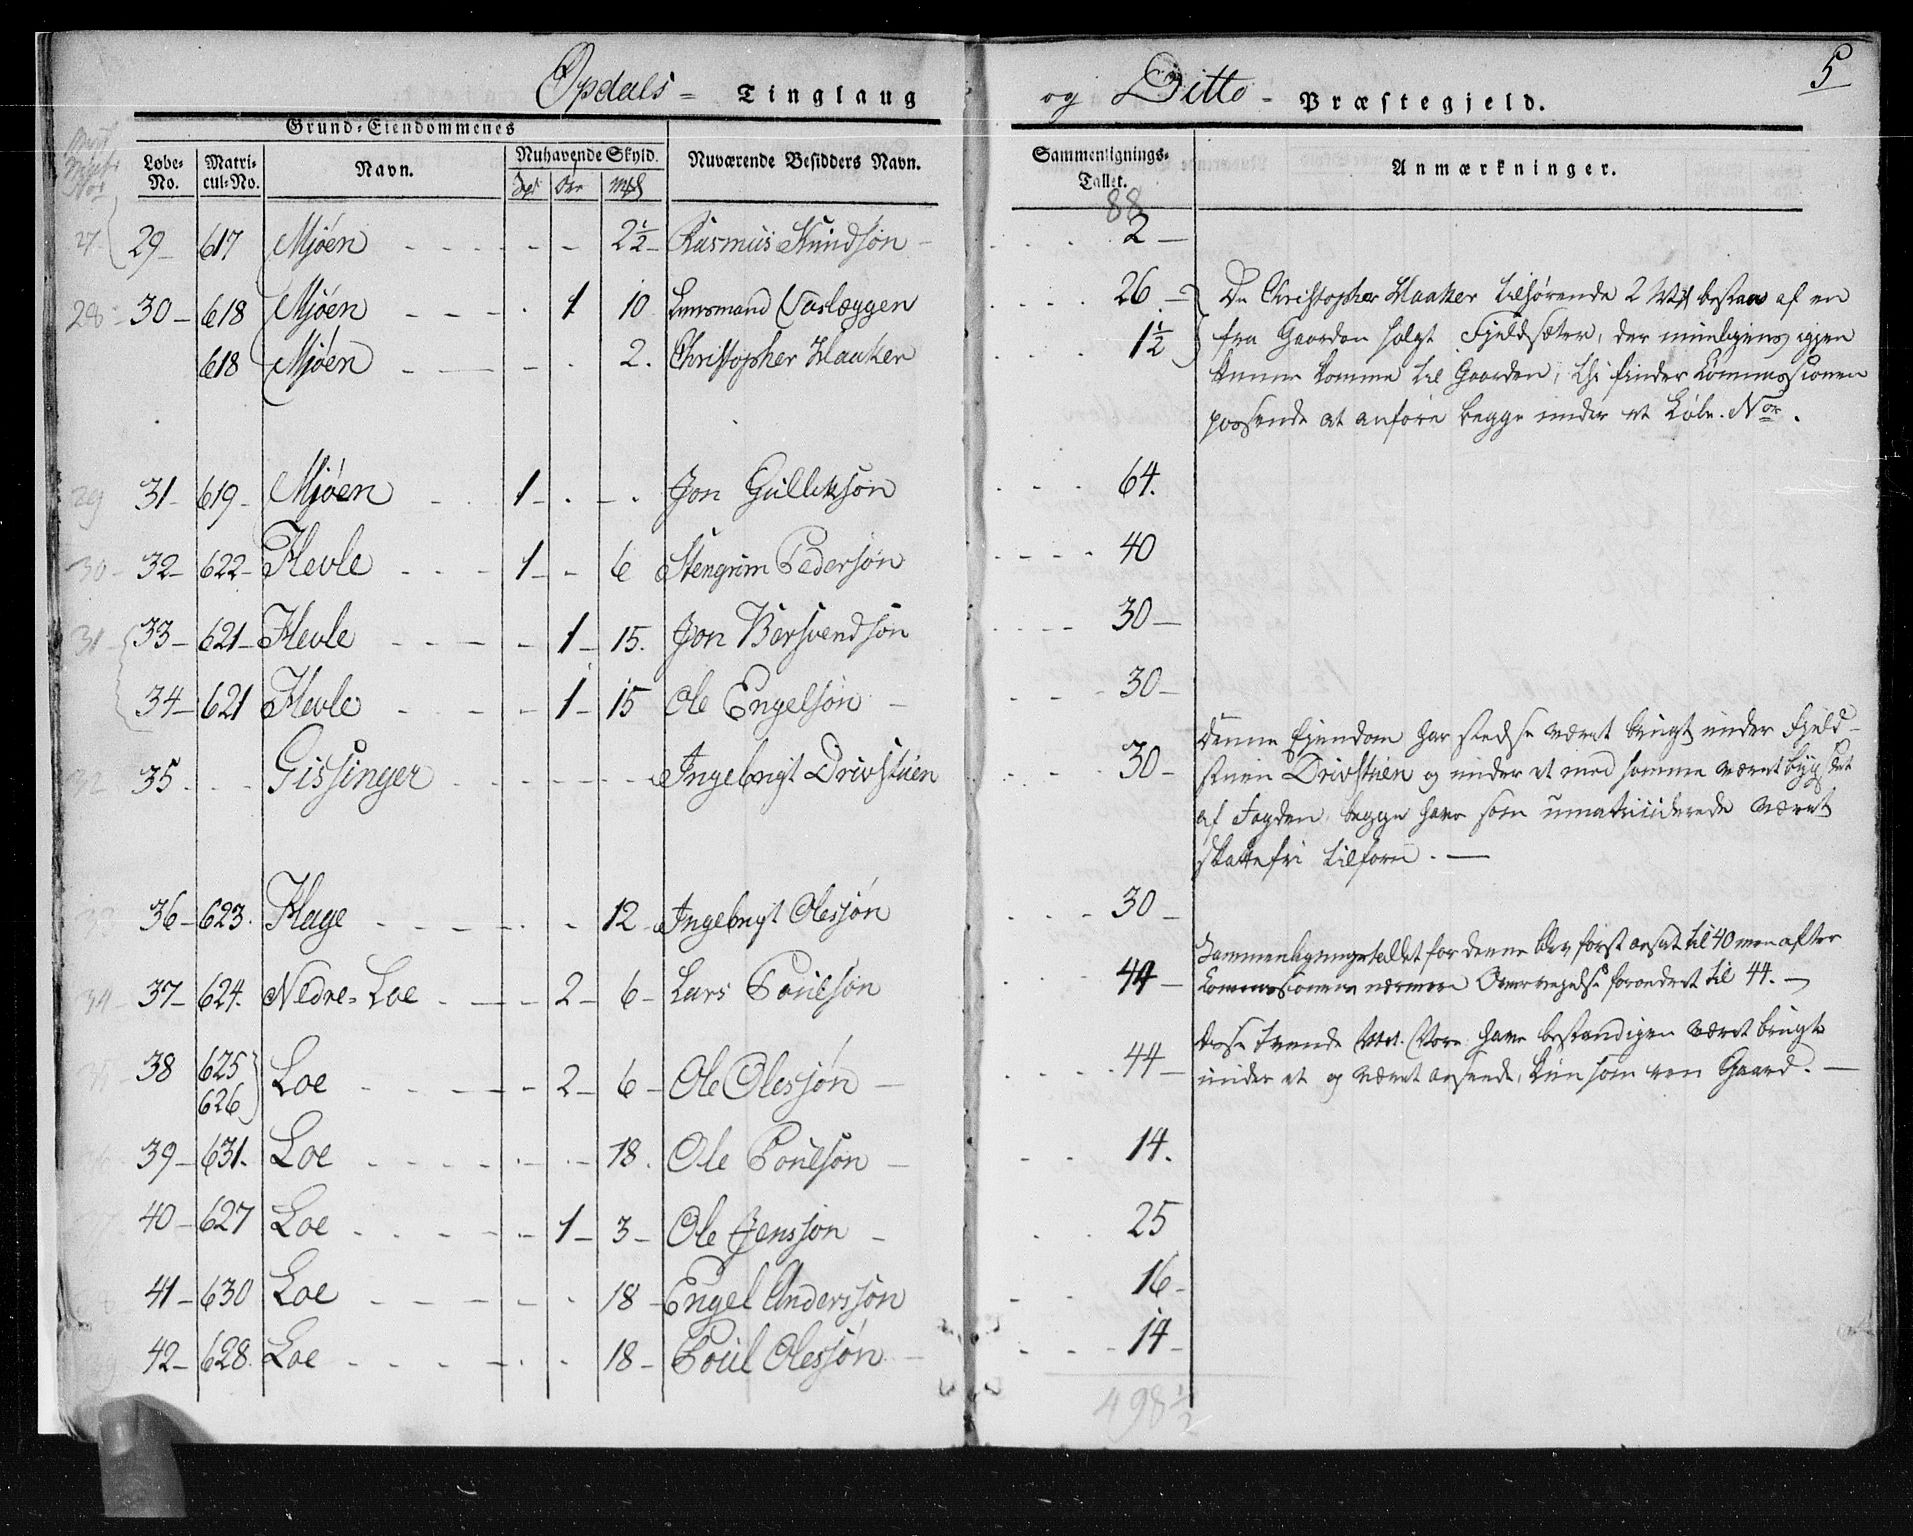 Opdals = Tinglaug og Ditto - Præstegjeld. 5
Grund-Eiendommenes
Løbe-No. Matricul-No. Navn. Nuhavende Skyld. Nuværende Besidders Navn. Sammenlignings-Tallet. Anmærkninger.
Spd Øre Mk
88
27 29 617 Mjøen 2 1/2 Rasmus Knudsøn 2
28 30 618 Mjøen 1 10 Lensmand Vaslæggen 26
618 Mjøen 2. Christopher Haaker 1 1/2
De Christopher Haaker tilhørende 2 Mk bestaar af en
fra Gaarden solgt Fjeldsæter, der muligens igjen
kunne komme til Gaarden, thi finder Commissionen
passende at anføre begge under et Løbe. No.
29 31 619 Mjøen 1 Jon Gulleksøn 64.
30 32 622 Hevle 1 6 Stengrim Pedersøn 40
31 33 621 Hevle 1 15. Jon Bersvendsøn 30
34 621 Hevle 1 15 Ole Engelsøn 30
32 35. Gissinger Ingebrigt Drivstuen 30
Denne Eiendom har stedse været brugt under Fjeld-
stuen Drivstuen og under et med samme været bygslet
af Fogden, begge have som umatriculerede været
skattefri tilforn.
33 36 623. Hage 12 Ingebrigt Olessøn 30
34 37 624. Nedre-Loe 2 6 Lars Poulsøn 44
Sammenligningstallet for denne blev først ansat til 40 men efter
Commissionens nærmere Overveielse forandret til 44.
38 625 626 Loe 2 6 Ole Olessøn 44
Disse tvende Mat. Nore have bestandigen været brugt
under et og været ansende, kun som een Gaard.
39 631. Loe 18. Ole Poulsøn 14.
40 627 Loe 1 3 Ole Jenssøn 25
41 630 Loe 18 Engel Anderssøn 16
42 628. Loe 18 Poul Olessøn 14
498 1/2